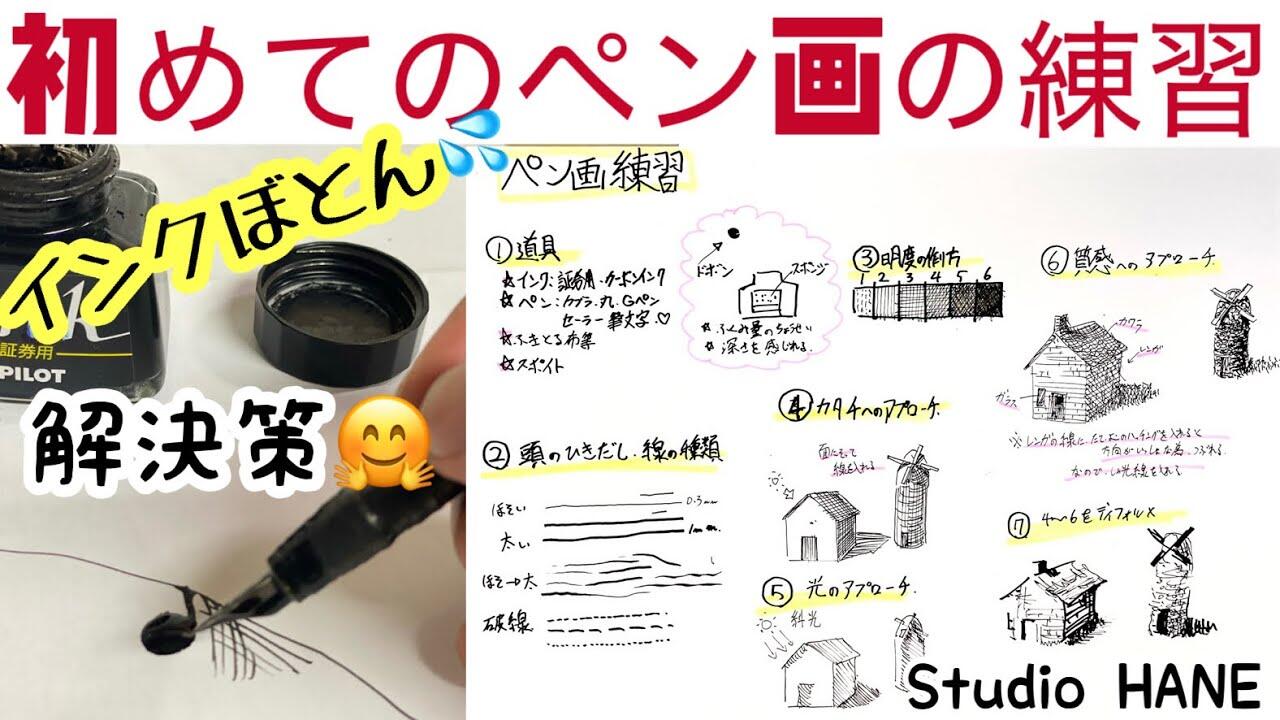 初めてのペン画の練習
インクぼとん
証券用
PILOT
解決策
ペン画練習
① 道具
☆インク:証券用・カーボンインク
☆ペン:カブラ・丸・Gペン
セーラー筆文字♡
☆ふきとる布等
☆スポイト
ドボン
スポンジ
☆ふくみ量のちょうせい
☆深さを感じれる
② 頭のひきだし・線の種類
ほそい
0.3mm
太い
1mm
ほそ→太
破線
③明度の作り方
1 2 3 4 5 6
④ カタチへのアプローチ
面にそって
線を入れる
⑤ 光のアプローチ
斜光
⑥ 質感へのアプローチ
カワラ
レンガ
ガラス
※レンガの様に、たてよこのハッチングを入れると
方向がいっしょな為、つぶれる
なので
⑦ 4〜6をディフォルメ
Studio HANE